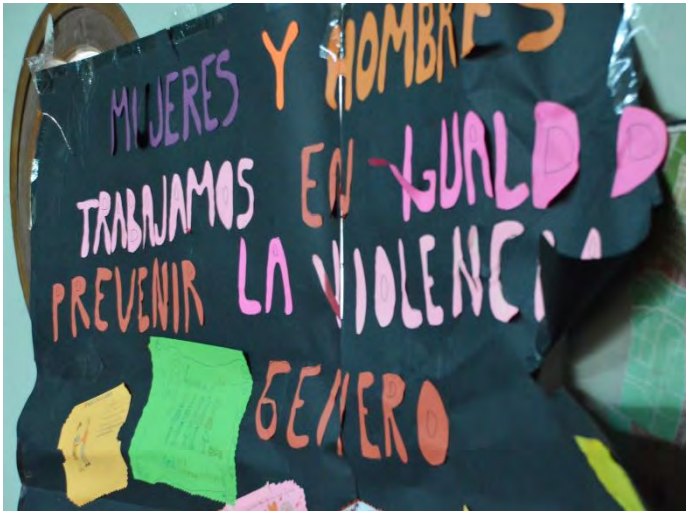 MUJERES Y HOMBRES
TRABAJAMOS EN IGUALDD
PREVENIR LA VIOLENCIA
GENERO